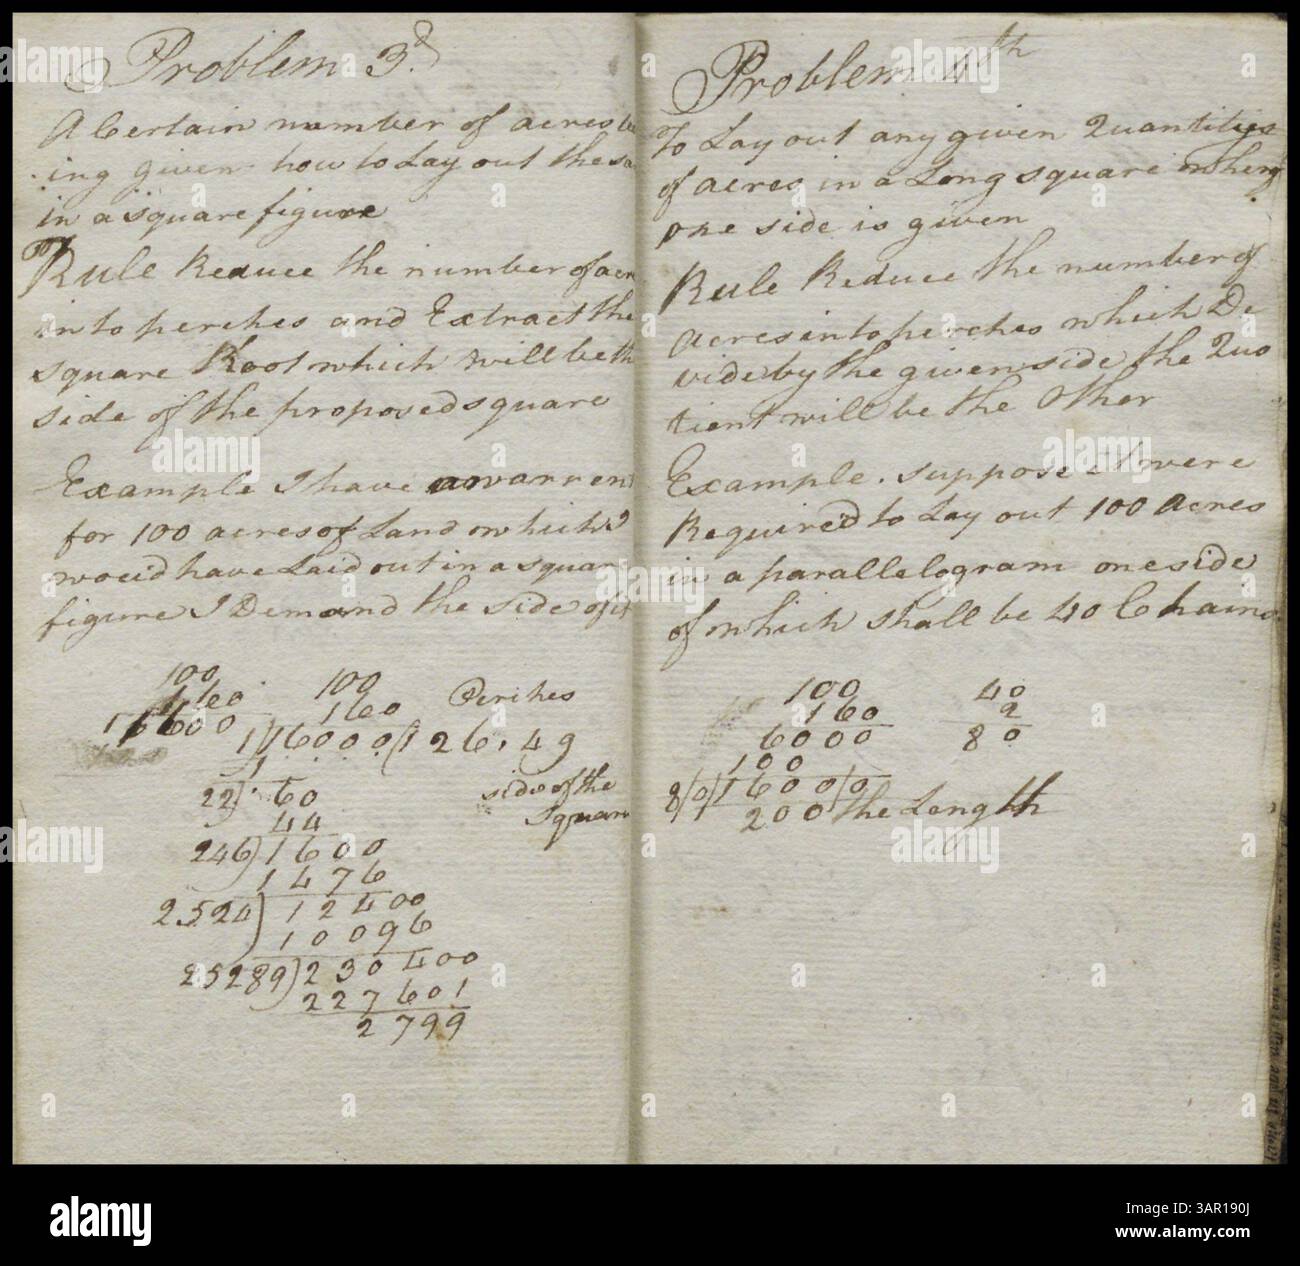 Problem 3d
A Certain number of acres be
ing given how to Lay out the sa
in a square figure
Rule Reduce the number of acr
into perches and Extract the
square Root which will be th
side of the proposed square
Example I have a warrent
for 100 acres of Land which I
would have Laid out in a squar
figure I Demand the side of it
100
160
16000
100
160
Perches
1)16000(126.49
1
22) 60
44
side of the
Square
246)1600
1476
2524)12400
10096
25289)230400
227601
2799
Problem 4th
To Lay out any given Quantity
of acres in a Long square when
one side is given
Rule Reduce the number of
Acres into perches which De
vide by the given side the Quo
tient will be the Other
Example. suppose it were
Required to Lay out 100 Acres
in a parallelogram one side
of which shall be 40 Chains
100
160
6000
100
40
2
80
8/0)1600/0
200 the Length
alamy
a
Image ID: 3AR190J
www.alamy.com